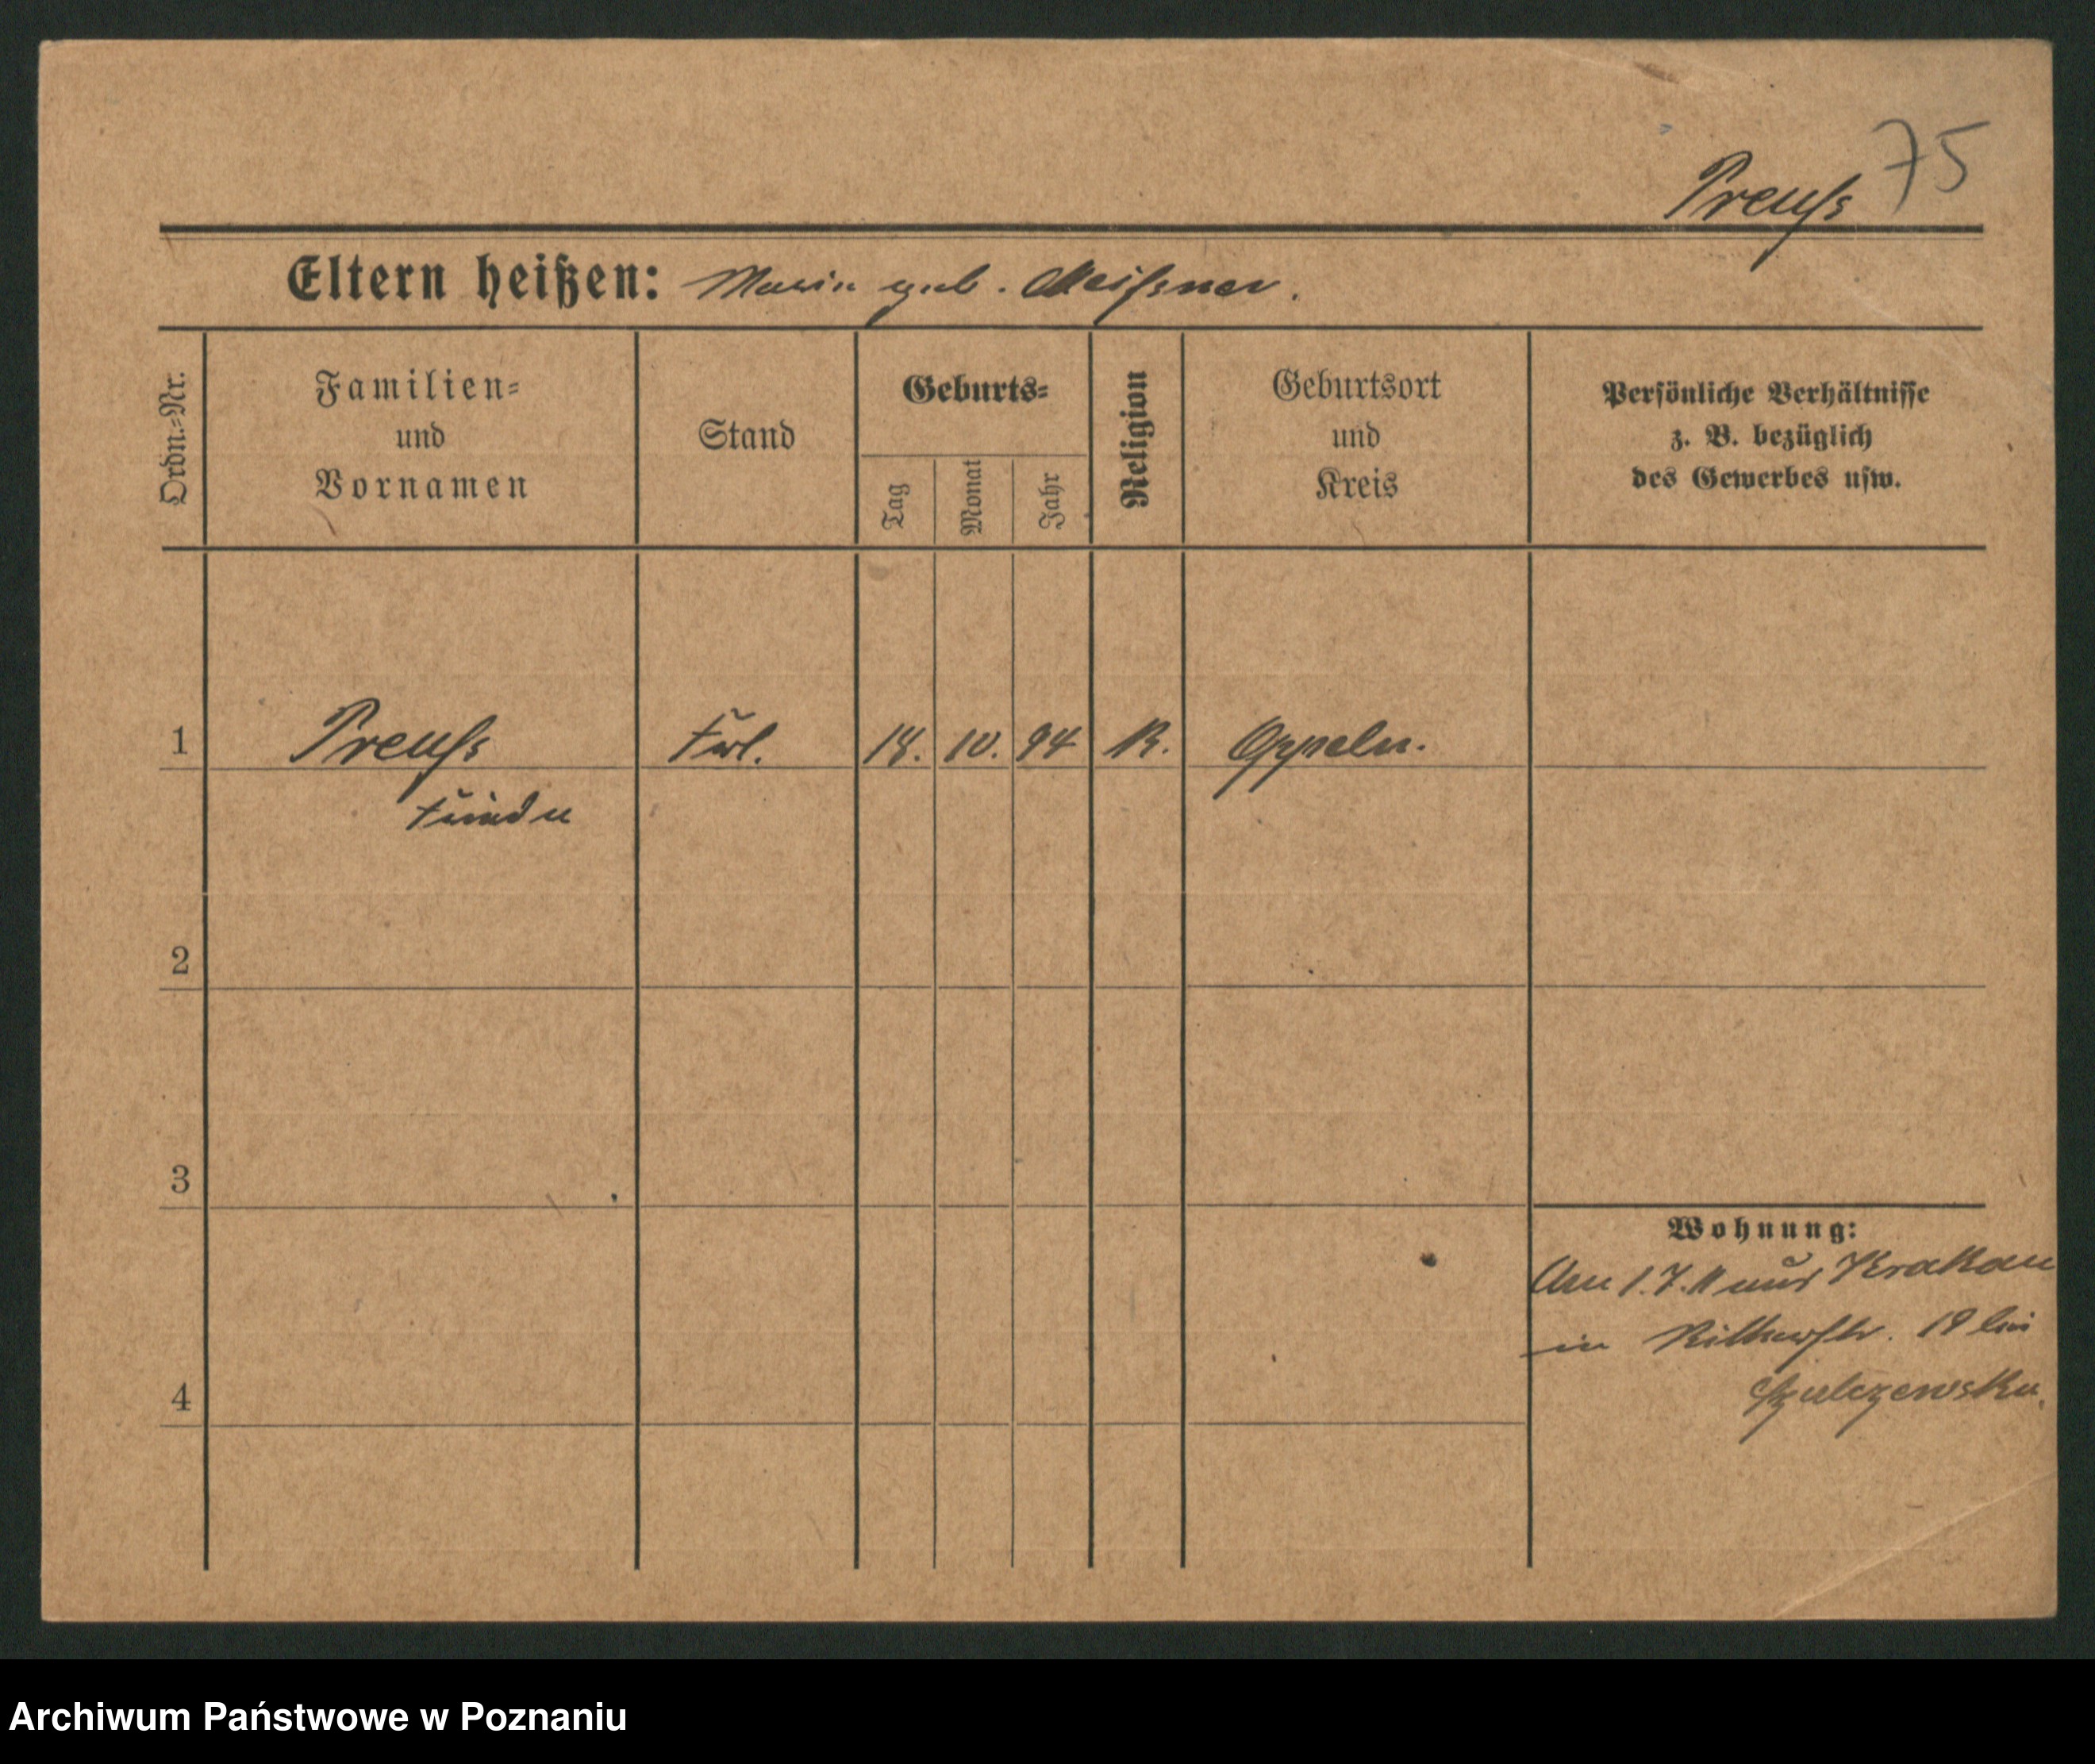 75
Preuß
Eltern heißen: Maria geb. Meißner.
Ordn.=Nr.
Familien=
und
Vornamen
Stand
Geburts=
Tag
Monat
Jahr
Religion
Geburtsort
und
Kreis
Persönliche Verhältnisse
z. B. bezüglich
des Gewerbes usw.
1 Preuß Frl. 18. 10. 94 K. Oppeln.
2
3
4
Wohnung:
Am 1.7.11 aus Krakau
in Ritterstr. 19 bei
Archiwum Państwowe w Poznaniu